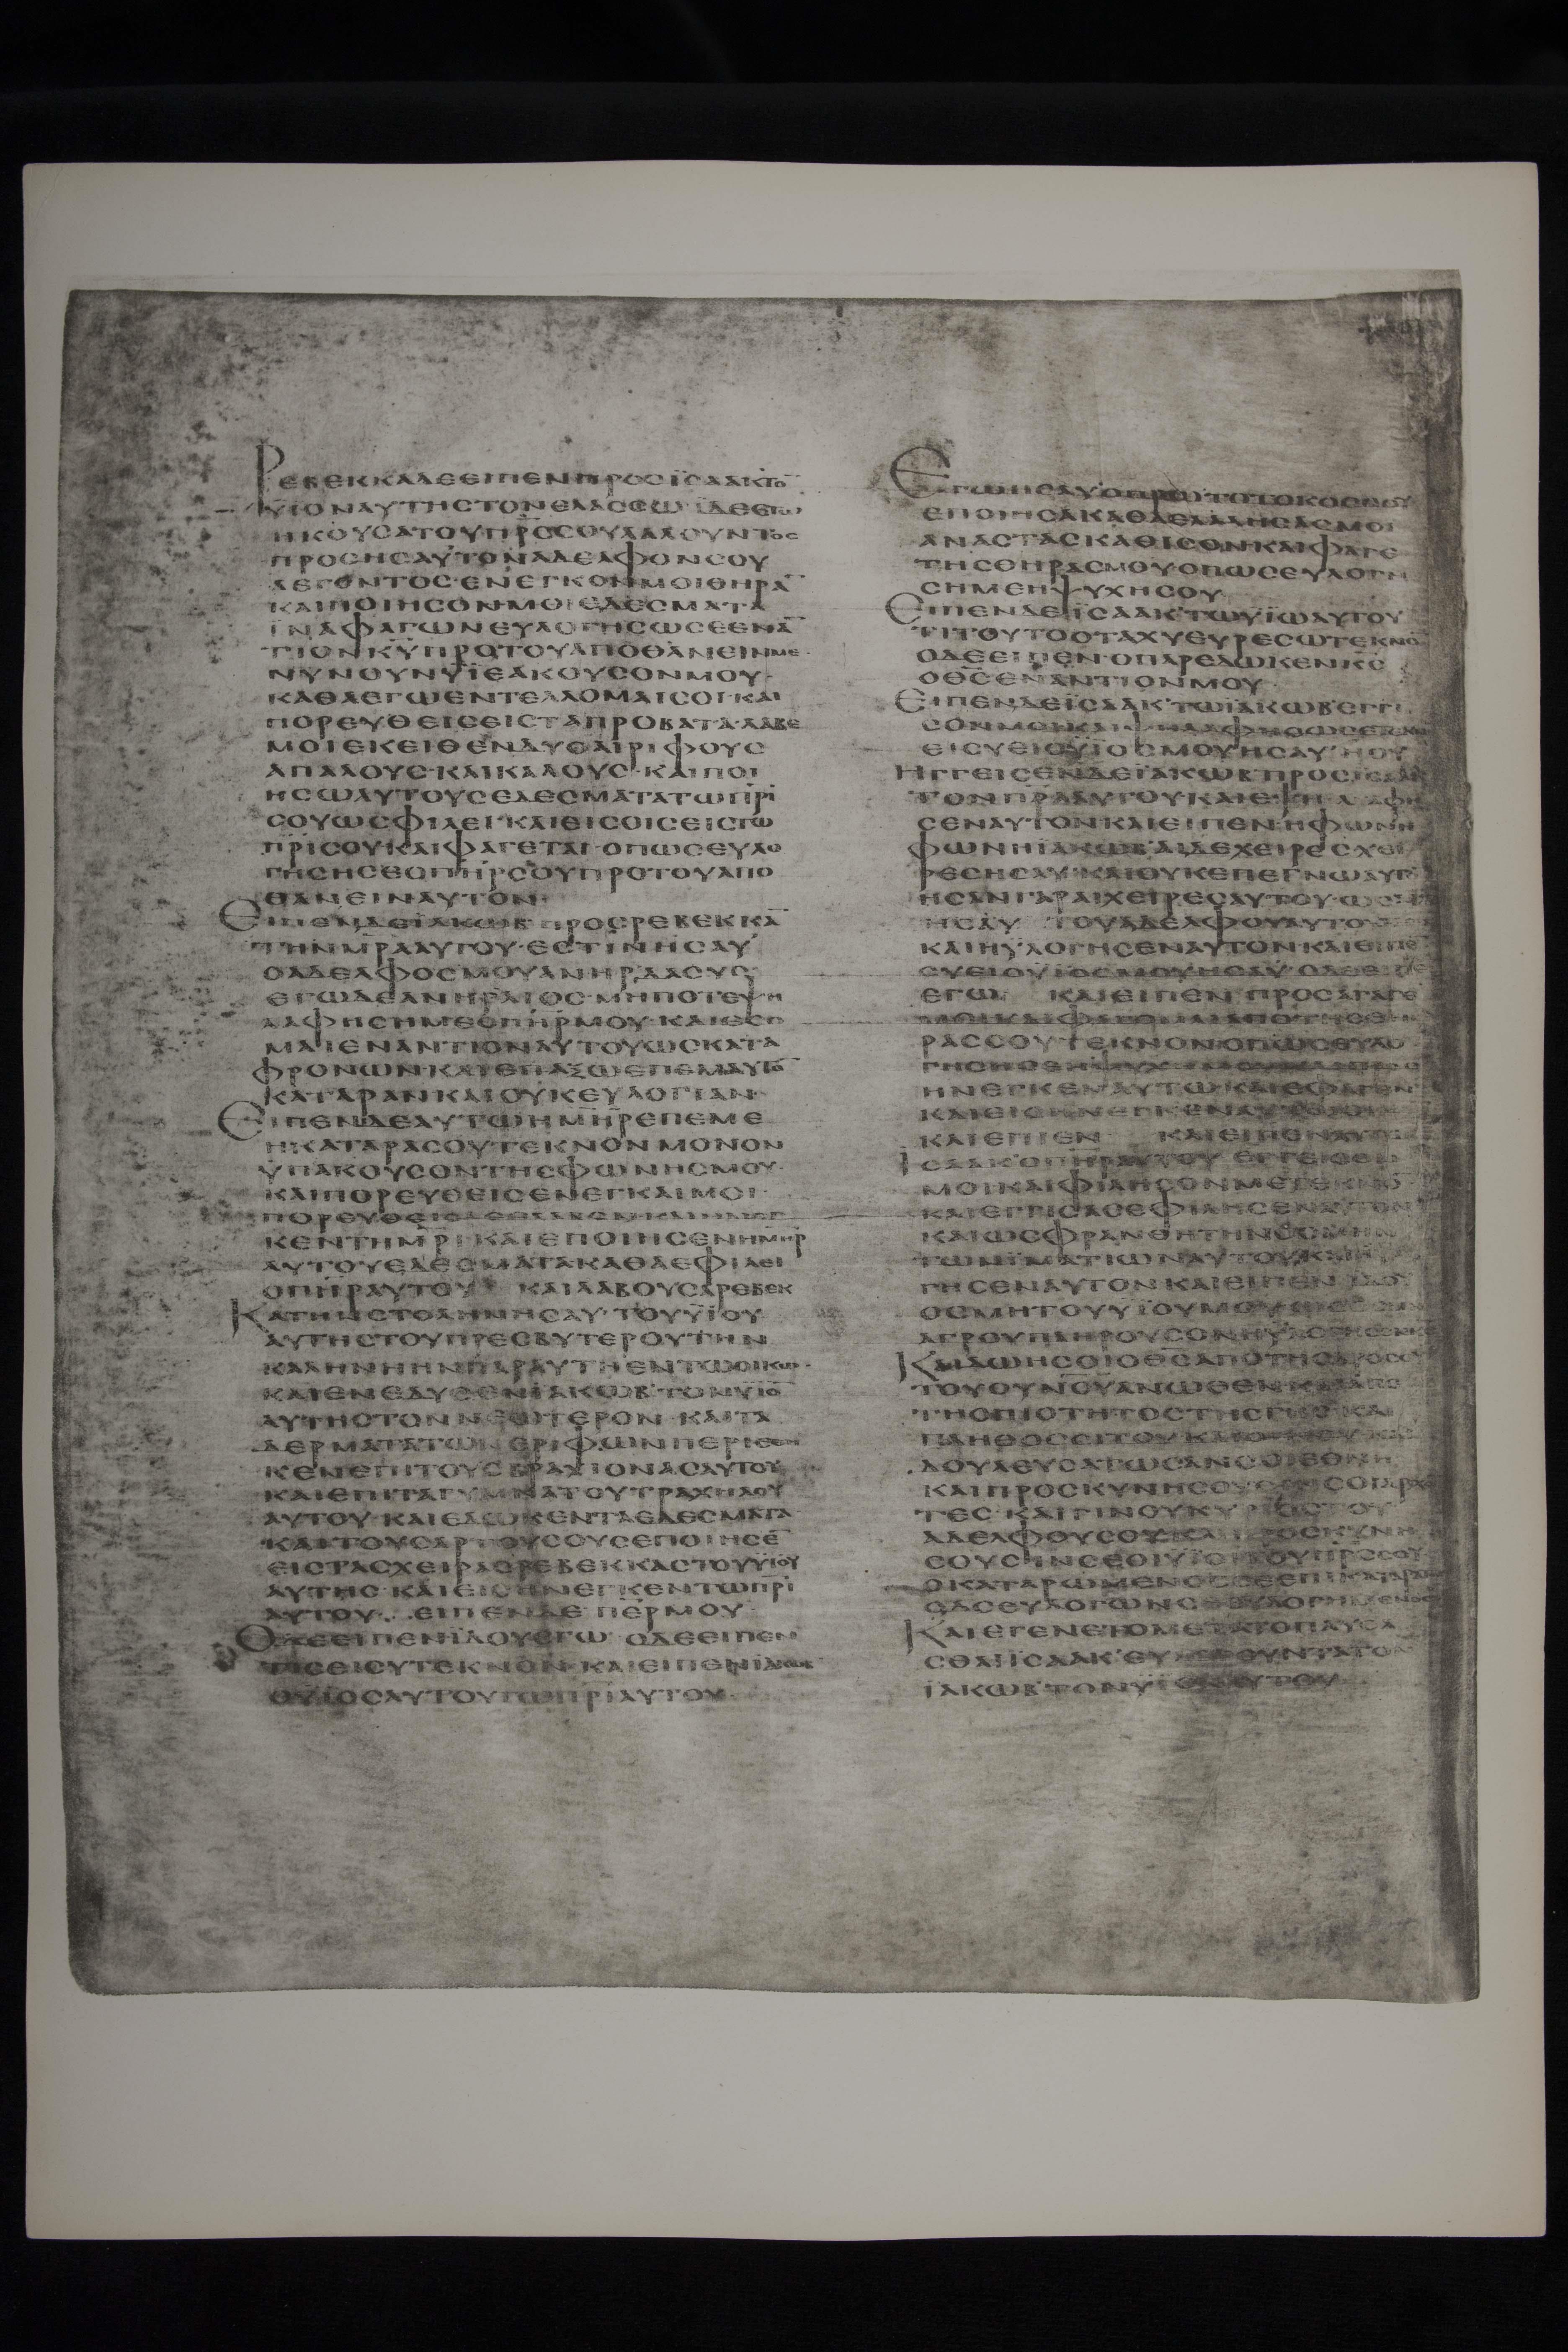 ΡΕΒΕΚΚΑΔΕΕΙΠΕΝΠΡΟΣΪΣΑΑΚΤΟ̅
ΥΙΟΝΑΥΤΗΣΤΟΝΕΛΑΣΣΩ ΪΔΕΕΓΩ
ΗΚΟΥΣΑΤΟΥΠΡ̅ΟΣΣΟΥΛΑΛΟΥΝΤΟΣ
ΠΡΟΣΗΣΑΥΤΟΝΑΔΕΛΦΟΝΣΟΥ
ΛΕΓΟΝΤΟΣ·ΕΝΕΓΚΟΝΜΟΙΘΗΡΑ̅
ΚΑΙΠΟΙΗΣΟΝΜΟΙΕΔΕΣΜΑΤΑ
ΪΝΑΦΑΓΩΝΕΥΛΟΓΗΣΩΣΕΕΝΑ̅
ΤΙΟΝΚ̅Υ̅ΠΡΟΤΟΥΑΠΟΘΑΝΕΙΝΜΕ·
ΝΥΝΟΥΝΥΪΕΑΚΟΥΣΟΝΜΟΥ·
ΚΑΘΑΕΓΩΕΝΤΕΛΛΟΜΑΙΣΟΙ·ΚΑΙ
ΠΟΡΕΥΘΕΙΣΕΙΣΤΑΠΡΟΒΑΤΑ·ΛΑΒΕ
ΜΟΙΕΚΕΙΘΕΝΔΥΟΑΙΡΙΦΟΥΣ
ΑΠΑΛΟΥΣ·ΚΑΙΚΑΛΟΥΣ·ΚΑΙΠΟΙ
ΗΣΩΑΥΤΟΥΣΕΔΕΣΜΑΤΑΤΩΠ̅Ρ̅Ι̅
ΣΟΥΩΣΦΙΛΕΙ·ΚΑΙΕΙΣΟΙΣΕΙΣΤΩ
Π̅Ρ̅Ι̅ΣΟΥΚΑΙΦΑΓΕΤΑΙ·ΟΠΩΣΕΥΛΟ
ΓΗΣΗΣΕΟΠ̅Η̅Ρ̅ΣΟΥΠΡΟΤΟΥΑΠΟ
ΘΑΝΕΙΝΑΥΤΟΝ·
ΕΙΠΕΝΔΕΪΑΚΩΒ·ΠΡΟΣΡΕΒΕΚΚΑ̅
ΤΗΝΜ̅Ρ̅Α̅ΑΥΤΟΥ·ΕΣΤΙΝΗΣΑΥ
ΟΑΔΕΛΦΟΣΜΟΥΑΝΗΡΔΑΣΥΣ
ΕΓΩΔΕΑΝΗΡΛΙΟΣ·ΜΗΠΟΤΕΨΗ
ΛΑΦΗΣΗΜΕΟΠ̅Η̅Ρ̅ΜΟΥ·ΚΑΙΕΣΟ
ΜΑΙΕΝΑΝΤΙΟΝΑΥΤΟΥΩΣΚΑΤΑ
ΦΡΟΝΩΝ·ΚΑΙΕΠΑΞΩΕΠΕΜΑΥΤΟ̅
ΚΑΤΑΡΑΝΚΑΙΟΥΚΕΥΛΟΓΙΑΝ·
ΕΙΠΕΝΔΕΑΥΤΩΗΜ̅Η̅Ρ̅ΕΠΕΜΕ
ΗΚΑΤΑΡΑΣΟΥΤΕΚΝΟΝΜΟΝΟΝ
ΫΠΑΚΟΥΣΟΝΤΗΣΦΩΝΗΣΜΟΥ·
ΚΑΙΠΟΡΕΥΘΕΙΣΕΝΕΓΚΑΙΜΟΙ·
ΠΟΡΕΥΘΕΙΣΔΕΕΛΑΒΕΝΚΑΙΗΝΕΓ
ΚΕΝΤΗΜ̅Ρ̅Ι̅·ΚΑΙΕΠΟΙΗΣΕΝΗΜ̅Η̅Ρ̅
ΑΥΤΟΥΕΔΕΣΜΑΤΑΚΑΘΑΕΦΙΛΕΙ
ΟΠ̅Η̅Ρ̅ΑΥΤΟΥ ΚΑΙΛΑΒΟΥΣΑΡΕΒΕΚ
ΚΑΤΗΝΣΤΟΛΗΝΗΣΑΥ ΤΟΥΥΪΟΥ
ΑΥΤΗΣΤΟΥΠΡΕΣΒΥΤΕΡΟΥΤΗΝ
ΚΑΛΗΝΗΗΝΠΑΡΑΥΤΗΕΝΤΩΟΙΚΩ·
ΚΑΙΕΝΕΔΥΣΕΝΪΑΚΩΒ ΤΟΝΥΪΟ̅
ΑΥΤΗΣΤΟΝΝΕΩΤΕΡΟΝ·ΚΑΙΤΑ
ΔΕΡΜΑΤΑΤΩΝΕΡΙΦΩΝΠΕΡΙΕΘΗ
ΚΕΝΕΠΙΤΟΥΣΒΡΑΧΙΟΝΑΣΑΥΤΟΥ
ΚΑΙΕΠΙΤΑΓΥΜΝΑΤΟΥΤΡΑΧΗΛΟΥ
ΑΥΤΟΥ·ΚΑΙΕΔΩΚΕΝΤΑΕΔΕΣΜΑΤΑ
ΚΑΙΤΟΥΣΑΡΤΟΥΣΟΥΣΕΠΟΙΗΣΕ̅
ΕΙΣΤΑΣΧΕΙΡΑΣΡΕΒΕΚΚΑΣΤΟΥΥΪΟΥ
ΑΥΤΗΣ·ΚΑΙΕΙΣΗΝΕΓΚΕΝΤΩΠ̅Ρ̅Ι̅
ΑΥΤΟΥ· ΕΙΠΕΝΔΕ ΠΕ̅Ρ̅ΜΟΥ·
ΟΔΕΕΙΠΕΝΪΔΟΥΕΓΩ· ΟΔΕΕΙΠΕΝ
ΤΙΣΕΙΣΥΤΕΚΝΟΝ·ΚΑΙΕΙΠΕΝΪΑΚΩΒ
ΟΥΪΟΣΑΥΤΟΥΤΩΠ̅Ρ̅Ι̅ΑΥΤΟΥ·
ΕΓΩΗΣΑΥΟΠΡΩΤΟΤΟΚΟΣΣΟΥ
ΕΠΟΙΗΣΑΚΑΘΑΕΛΑΛΗΣΑΣΜΟΙ
ΑΝΑΣΤΑΣΚΑΘΙΣΟΝΚΑΙΦΑΓΕ
ΤΗΣΘΗΡΑΣΜΟΥΟΠΩΣΕΥΛΟΓΗ
ΣΗΜΕΗΨΥΧΗΣΟΥ
ΕΙΠΕΝΔΕΪΣΑΑΚ ΤΩΥΪΩΑΥΤΟΥ
ΤΙΤΟΥΤΟΟΤΑΧΥΕΥΡΕΣΩΤΕΚΝΟ̅
ΟΔΕΕΙΠΕΝ·ΟΠΑΡΕΔΩΚΕΝΚ̅Σ̅
ΟΘ̅Σ̅ΕΝΑΝΤΙΟΝΜΟΥ·
ΕΙΠΕΝΔΕΪΣΑΑΚ ΤΩΪΑΚΩΒΕΓΓΙ
ΣΟΝΜΟΙΚΑΙΨΗΛΑΦΗΣΩΣΕ
ΕΙΣΥΕΙΟΥΪΟΣΜΟΥΗΣΑΥ ΗΟΥ
ΗΓΓΕΙΣΕΝΔΕΪΑΚΩΒ·ΠΡΟΣΪΣΑΑΚ
ΤΟΝΠ̅Ρ̅Α̅ΑΥΤΟΥΚΑΙΕΨΗΛΑΦΗ
ΣΕΝΑΥΤΟΝΚΑΙΕΙΠΕΝ·ΗΦΩΝΗ
ΦΩΝΗΪΑΚΩΒ·ΑΙΔΕΧΕΙΡΕΣΧΕΙ
ΡΕΣΗΣΑΥ·ΚΑΙΟΥΚΕΠΕΓΝΩΑΥΤΟ̅
ΗΣΑΝΓΑΡΑΙΧΕΙΡΕΣΑΥΤΟΥ·ΩΣΑΙ
ΗΣΑΥ ΤΟΥΑΔΕΛΦΟΥΑΥΤΟΥ
ΚΑΙΗΥΛΟΓΗΣΕΝΑΥΤΟΝΚΑΙΕΙΠΕ̅
ΣΥΕΙΟΥΪΟΣΜΟΥΗΣΑΥ·ΟΔΕΕΙΠΕ
ΕΓΩ· ΚΑΙΕΙΠΕΝ·ΠΡΟΣΑΓΑΓΕ
ΜΟΙΚΑΙΦΑΓΟΜΑΙΑΠΟΤΗΣΘΗ
ΡΑΣΣΟΥΤΕΚΝΟΝΟΠΩΣΕΥΛΟ
ΗΝΕΓΚΕΝΑΥΤΩΚΑΙΕΦΑΓΕΝ
ΚΑΙΕΙΣΗΝΕΓΚΕΝΑΥΤΩΟΙΝΟ
ΚΑΙΕΠΙΕΝ ΚΑΙΕΙΠΕΝΑΥΤΩ
ΪΣΑΑΚΟΠ̅Η̅Ρ̅ΑΥΤΟΥ·ΕΓΓΕΙΣΟΝ
ΜΟΙΚΑΙΦΙΛΗΣΟΝΜΕΤΕΚΝΟ̅
ΚΑΙΕΓΓΙΣΑΣΕΦΙΛΗΣΕΝΑΥΤΟΝ
ΚΑΙΩΣΦΡΑΝΘΗΤΗΝΟΣΜΗΝ
ΤΩΝΪΜΑΤΙΩΝΑΥΤΟΥΚΑΙΗΥΛΟ
ΓΗΣΕΝΑΥΤΟΝΚΑΙΕΙΠΕΝ ΙΔΟΥ
ΟΣΜΗΤΟΥΥΪΟΥΜΟΥ
ΑΓΡΟΥΠΛΗΡΟΥΣΟΝΗΥΛΟΓΗΣΕΝΚ̅Σ̅
ΚΑΙΔΩΗΣΟΙΟΘ̅Σ̅ΑΠΟΤΗΣΔΡΟΣΟΥ
ΤΟΥΟΥΝ̅Ο̅Υ̅ΑΝΩΘΕΝΚΑΙΑΠΟ
ΤΗΣΠΙΟΤΗΤΟΣΤΗΣΓΗΣ ΚΑΙ
ΠΛΗΘΟΣΣΙΤΟΥΚΑΙΟΙΝΟΥ·ΚΑΙ
ΔΟΥΛΕΥΣΑΤΩΣΑΝΣΟΙΕΘΝΗ
ΚΑΙΠΡΟΣΚΥΝΗΣΟΥΣΙΝΣΟΙΑΡΧΟ̅
ΤΕΣ·ΚΑΙΓΙΝΟΥΚΥΡΙΟΣΤΟΥ
ΑΔΕΛΦΟΥΣΟΥ·ΚΑΙΠΡΟΣΚΥΝΗ
ΣΟΥΣΙΝΣΕΟΙΥΪΟΙΤΟΥΠ̅Ρ̅Σ̅ΣΟΥ
ΟΚΑΤΑΡΩΜΕΝΟΣΣΕΕΠΙΚΑΤΑΡΑΤΟΣ
ΟΔΕΕΥΛΟΓΩΝΣΕΕΥΛΟΓΗΜΕΝΟΣ
ΚΑΙΕΓΕΝΕΤΟΜΕΤΑΤΟΠΑΥΣΑ
ΣΘΑΙΪΣΑΑΚ ΕΥΛΟΓΟΥΝΤΑΤΟΝ
ΪΑΚΩΒ·ΤΟΝΥΪΟΝΑΥΤΟΥ